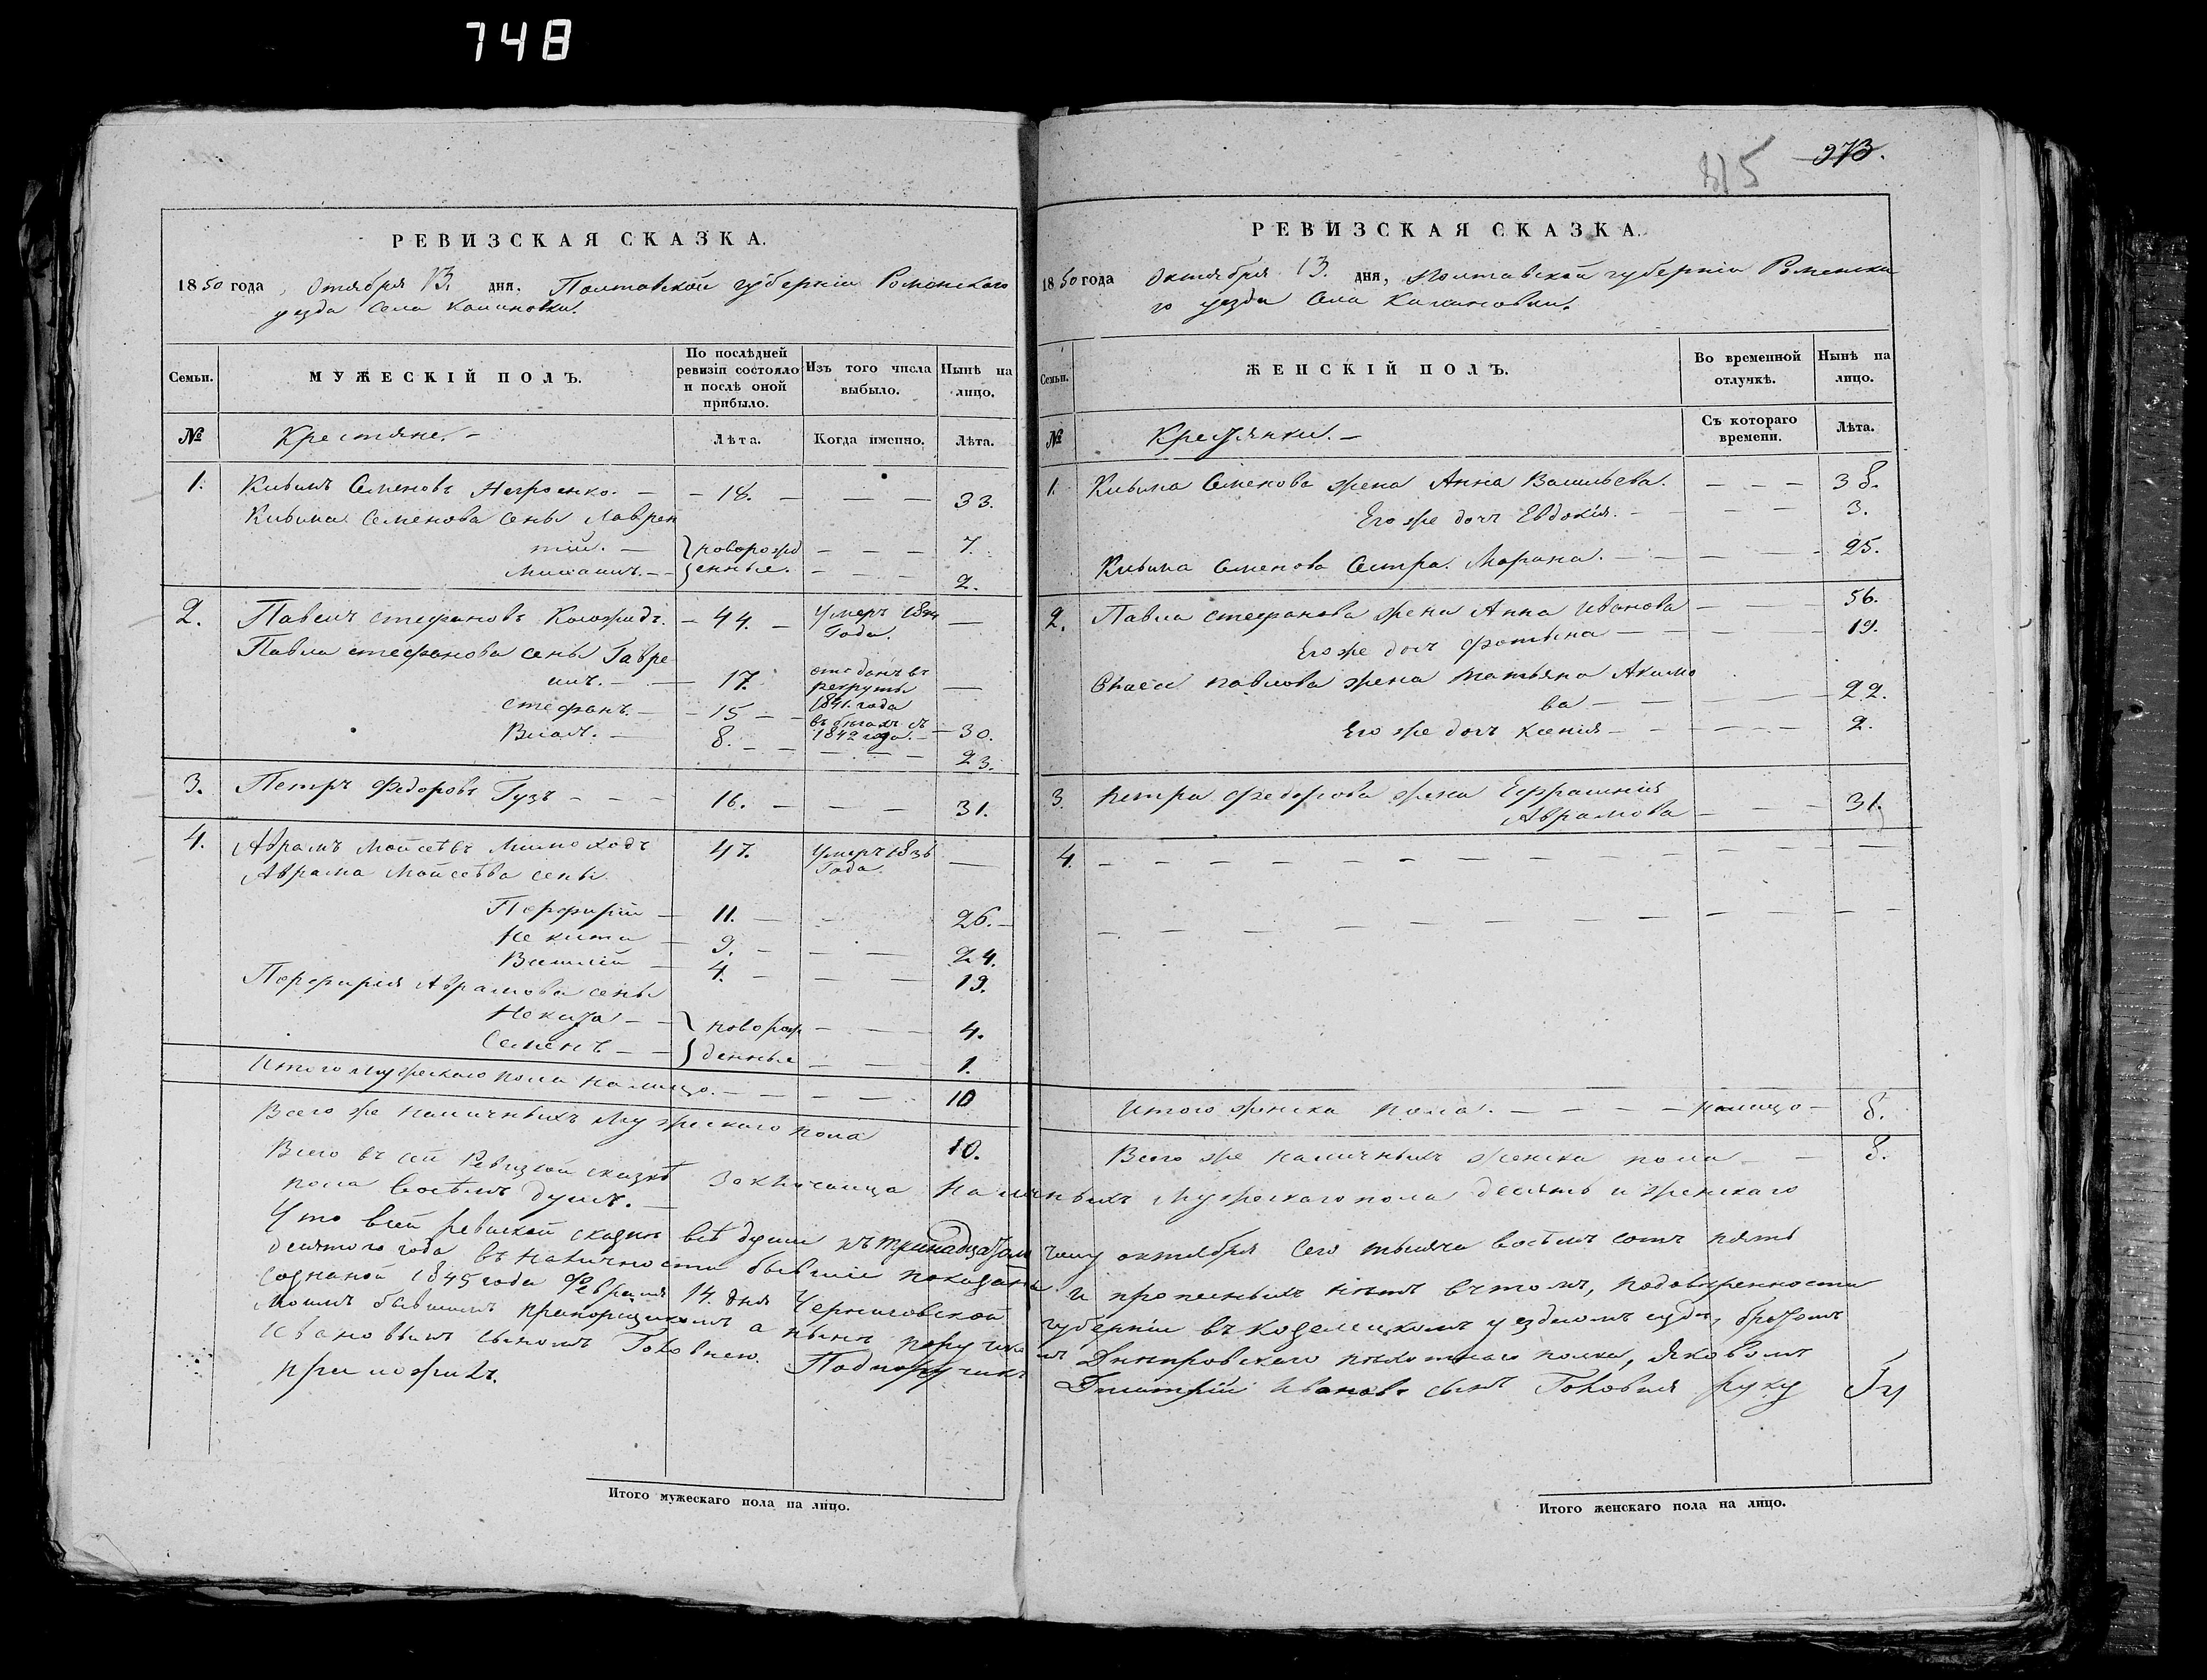 748
РЕВИЗСКАЯ СКАЗКА.
1850 года, Октября 13. дня. Полтавской губерніи Роменского
уезда Села Калиновки.
Семьи.
МУЖЕСКІЙ ПОЛЪ.
По послѣдней ревизіи состояло и послѣ оной прибыло.
Изъ того числа выбыло.
Нынѣ на лицо.
№
Крестяне. –
Лѣта.
Когда именно.
Лѣта.
1. Семеновъ – 18. – — — 33.
Семенова сены Лаврен
тій. — новорожд — — — 7.
енные. — — — 2.
2. Павелъ Стефановъ – 44. – Умеръ Года. —
Павла Стефанова сены Гавре
илъ. — 17. отданъ въ рекруты 1841. года —
Стефанъ. — – 15 – въ бегахъ съ 1842 года. — 30.
8. — — — 23.
3. Петръ Федоровъ Гузъ – – – 16. – — — 31.
4. Аврамъ Мойсѣевъ 47. Умеръ Года. —
Аврама Мойсѣева сены
Перфирій — 11. — 26. –
Некита — 9. – — 24.
Василій — 4. – — — 19.
Перфирія Аврамова сены
Некита — новорож — — — 4.
Семенъ — — денные — — — 1.
Итого мужескаго пола налицо. — — — — 10
Всего же наличныхъ мужескаго пола 10.
315 273.
РЕВИЗСКАЯ СКАЗКА.
1850 года Октября 13. дня, Полтавской губерніи Роменска
го уезда Села Калиновки.
Семьи.
ЖЕНСКІЙ ПОЛЪ.
Во временной отлучкѣ.
Нынѣ на лицо.
№
Крестянки. –
Съ котораго времени.
Лѣта.
1. Семенова жена Анна Васильева. — — — 38.
Его же доч Евдокія. — — — 3.
Семенова Сестра. Марина. — — — — 25.
2. Павла Стефанова жена Анна Иванова — — 56.
Его же доч Фотина — — — — 19.
павлова жена Татьяна Акимо
ва — — — — 22.
Его же доч Ксенія — — — — 2.
3. Петра Федорова жена Ефрасинія
Аврамова — — — 31.
4. — — — — — — — — — —
Итого женска пола. — — — — налицо – 8.
Всего же наличныхъ женска пола — – 8.
Всего въ сей Ревизкой сказкѣ наличныхъ мужескаго пола десять и женскаго
пола восѣмъ душъ. —
Что всей ревизкой сказке всѣ души къ тринадцатому октября сего тысяча восѣмъ сотъ пять
десятого года въ наличности бывшіе показаны и пропесныхъ нѣтъ въ томъ, по доверенности
созданой 1845 года Февраля 14. дня Черниговской губерніи въ Козелецкомъ уездномъ суде, братомъ
Моимъ бывшимъ прапорщикомъ а ныне поручикомъ Днепровскаго пехотнаго полка, Яковомъ
Ивановымъ сыномъ Подпоручикъ Дмитрій Ивановъ сынъ руку
приложилъ.
Итого мужескаго пола на лицо.
Итого женскаго пола на лицо.